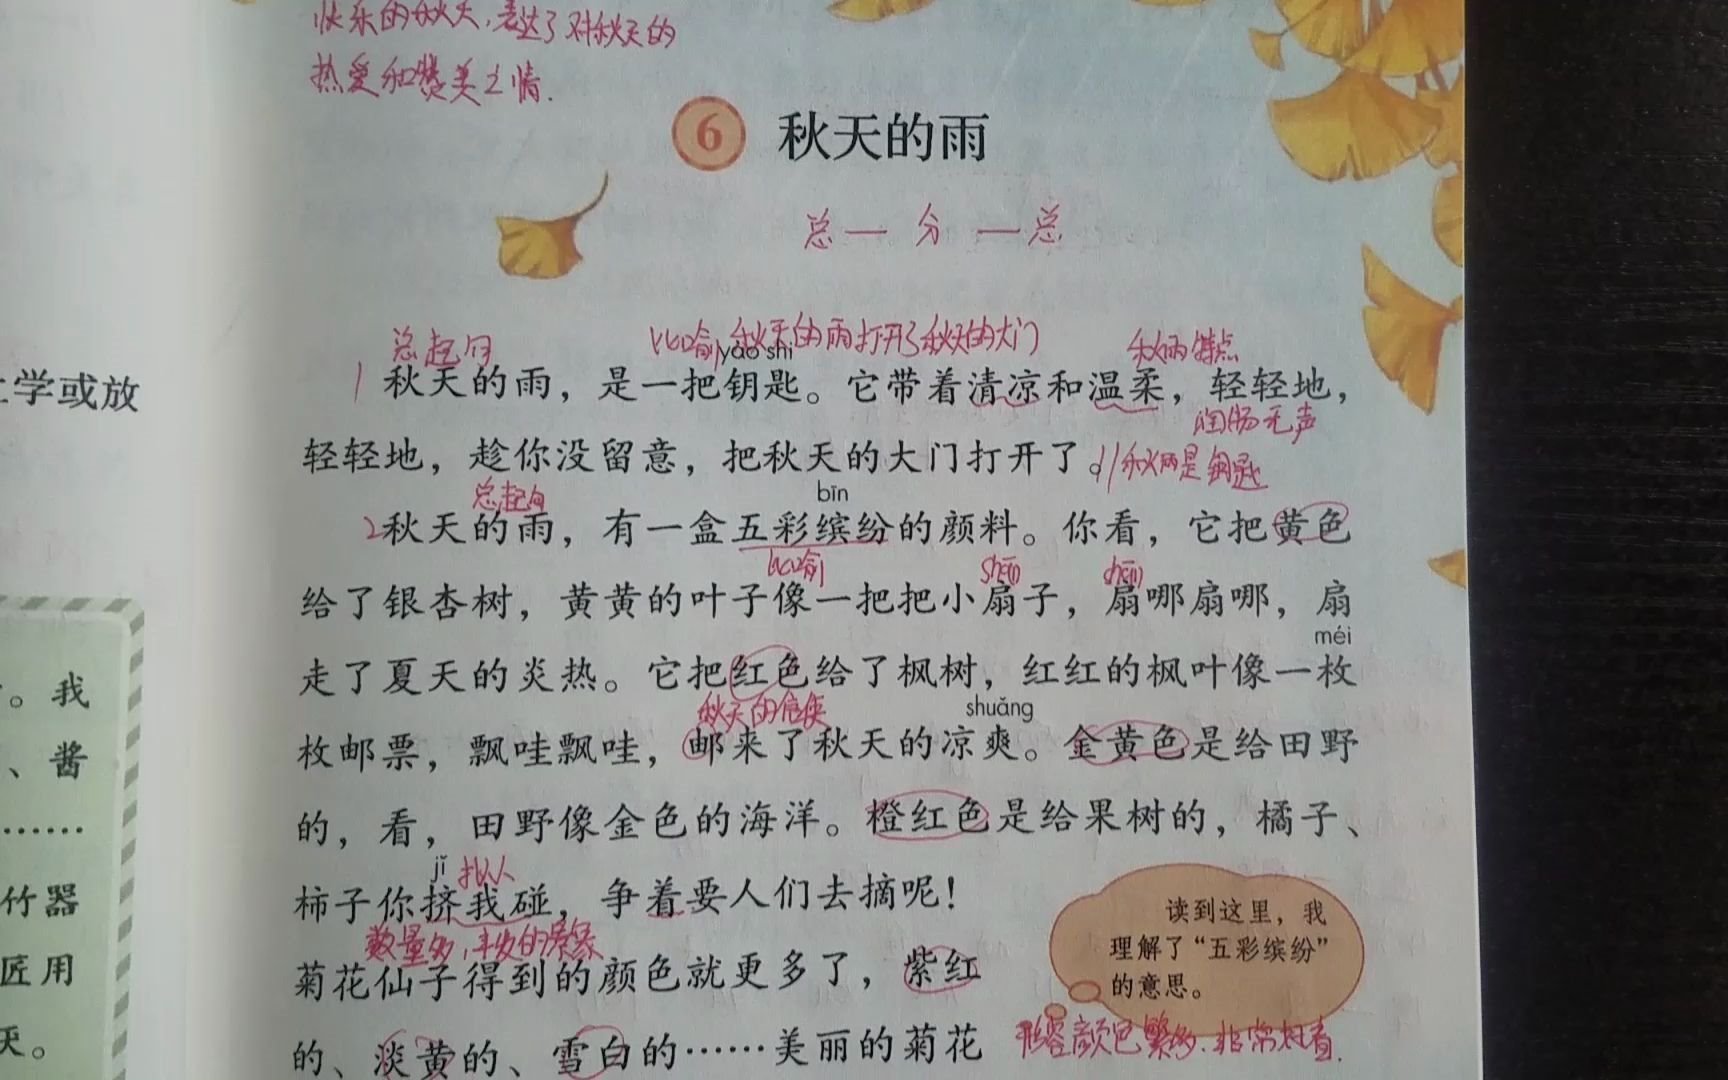 快乐的秋天，表达了对秋天的
热爱和赞美之情.
6 秋天的雨
总—分—总
总起句 比喻 秋天的雨打开了秋天的大门 秋雨特点
yào shi
1 秋天的雨，是一把钥匙。它带着清凉和温柔，轻轻地，
无声
轻轻地，趁你没留意，把秋天的大门打开了。// 秋雨是钥匙
总起句 bīn
2 秋天的雨，有一盒五彩缤纷的颜料。你看，它把黄色
比喻 shàn shān
给了银杏树，黄黄的叶子像一把把小扇子，扇哪扇哪，扇
méi
走了夏天的炎热。它把红色给了枫树，红红的枫叶像一枚
秋天的信使 shuǎng
枚邮票，飘哇飘哇，邮来了秋天的凉爽。金黄色是给田野
的，看，田野像金色的海洋。橙红色是给果树的，橘子、
jǐ 拟人
柿子你挤我碰，争着要人们去摘呢！
数量多，丰收的景象
菊花仙子得到的颜色就更多了，紫红
的、淡黄的、雪白的……美丽的菊花
读到这里，我
理解了“五彩缤纷”
的意思。
形容颜色繁多.非常好看.
上学或放
。我
、酱
……
竹器
匠用
天。